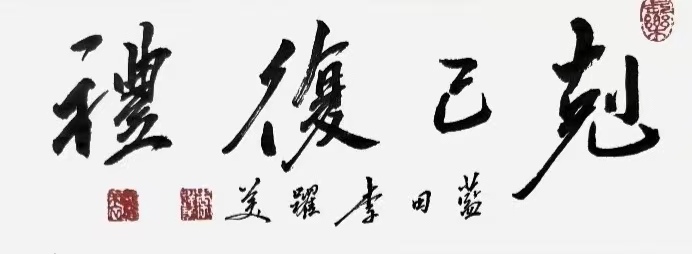 剋己復禮
藍田李躍美